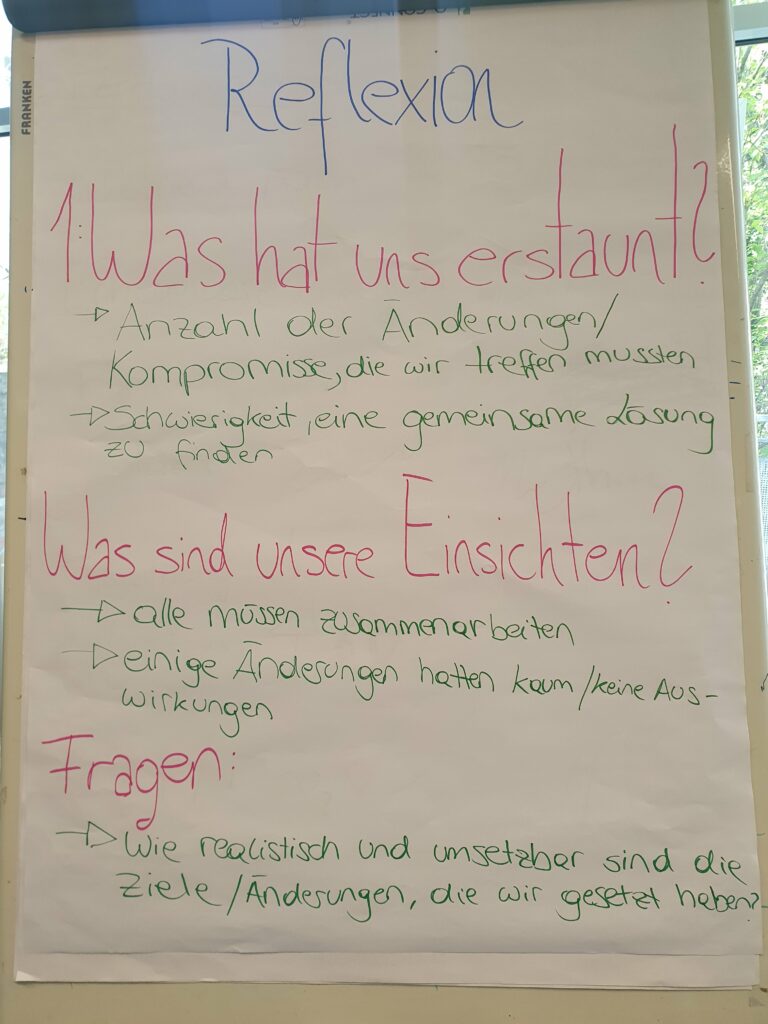 FRANKEN
Reflexion
1. Was hat uns erstaunt?
Anzahl der Änderungen/
Kompromisse, die wir treffen mussten
Schwierigkeit, eine gemeinsame Lösung
zu finden
Was sind unsere Einsichten?
alle müssen zusammenarbeiten
einige Änderungen hatten kaum/keine Aus-
wirkungen
Fragen:
Wie realistisch und umsetzbar sind die
Ziele/Änderungen, die wir gesetzt haben?